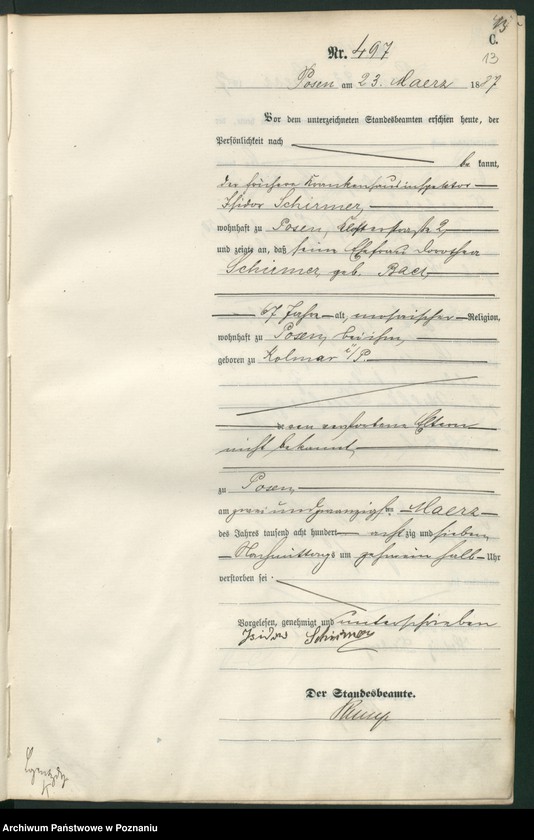 C.
13
Nr. 497
Posen am 23. Maerz 1887
Vor dem unterzeichneten Standesbeamten erschien heute, der
Persönlichkeit nach
be kannt,
der frühere Krankenhausinspektor
Isidor Schirmer,
wohnhaft zu Posen, 2,
und zeigte an, daß seine Ehefrau Dorothea
Schirmer geb.
67 Jahr alt, mosaischer Religion,
wohnhaft zu Posen, bei ihm,
geboren zu Kolmar i/P.
verstorbenen Eltern
nicht bekannt,
zu Posen,
am zweiundzwanzigsten Maerz
des Jahres tausend acht hundert achtzig und sieben,
Nachmittags um halb Uhr
verstorben sei
Vorgelesen, genehmigt und unterschrieben
Isidor Schirmer
Der Standesbeamte.
Archiwum Państwowe w Poznaniu